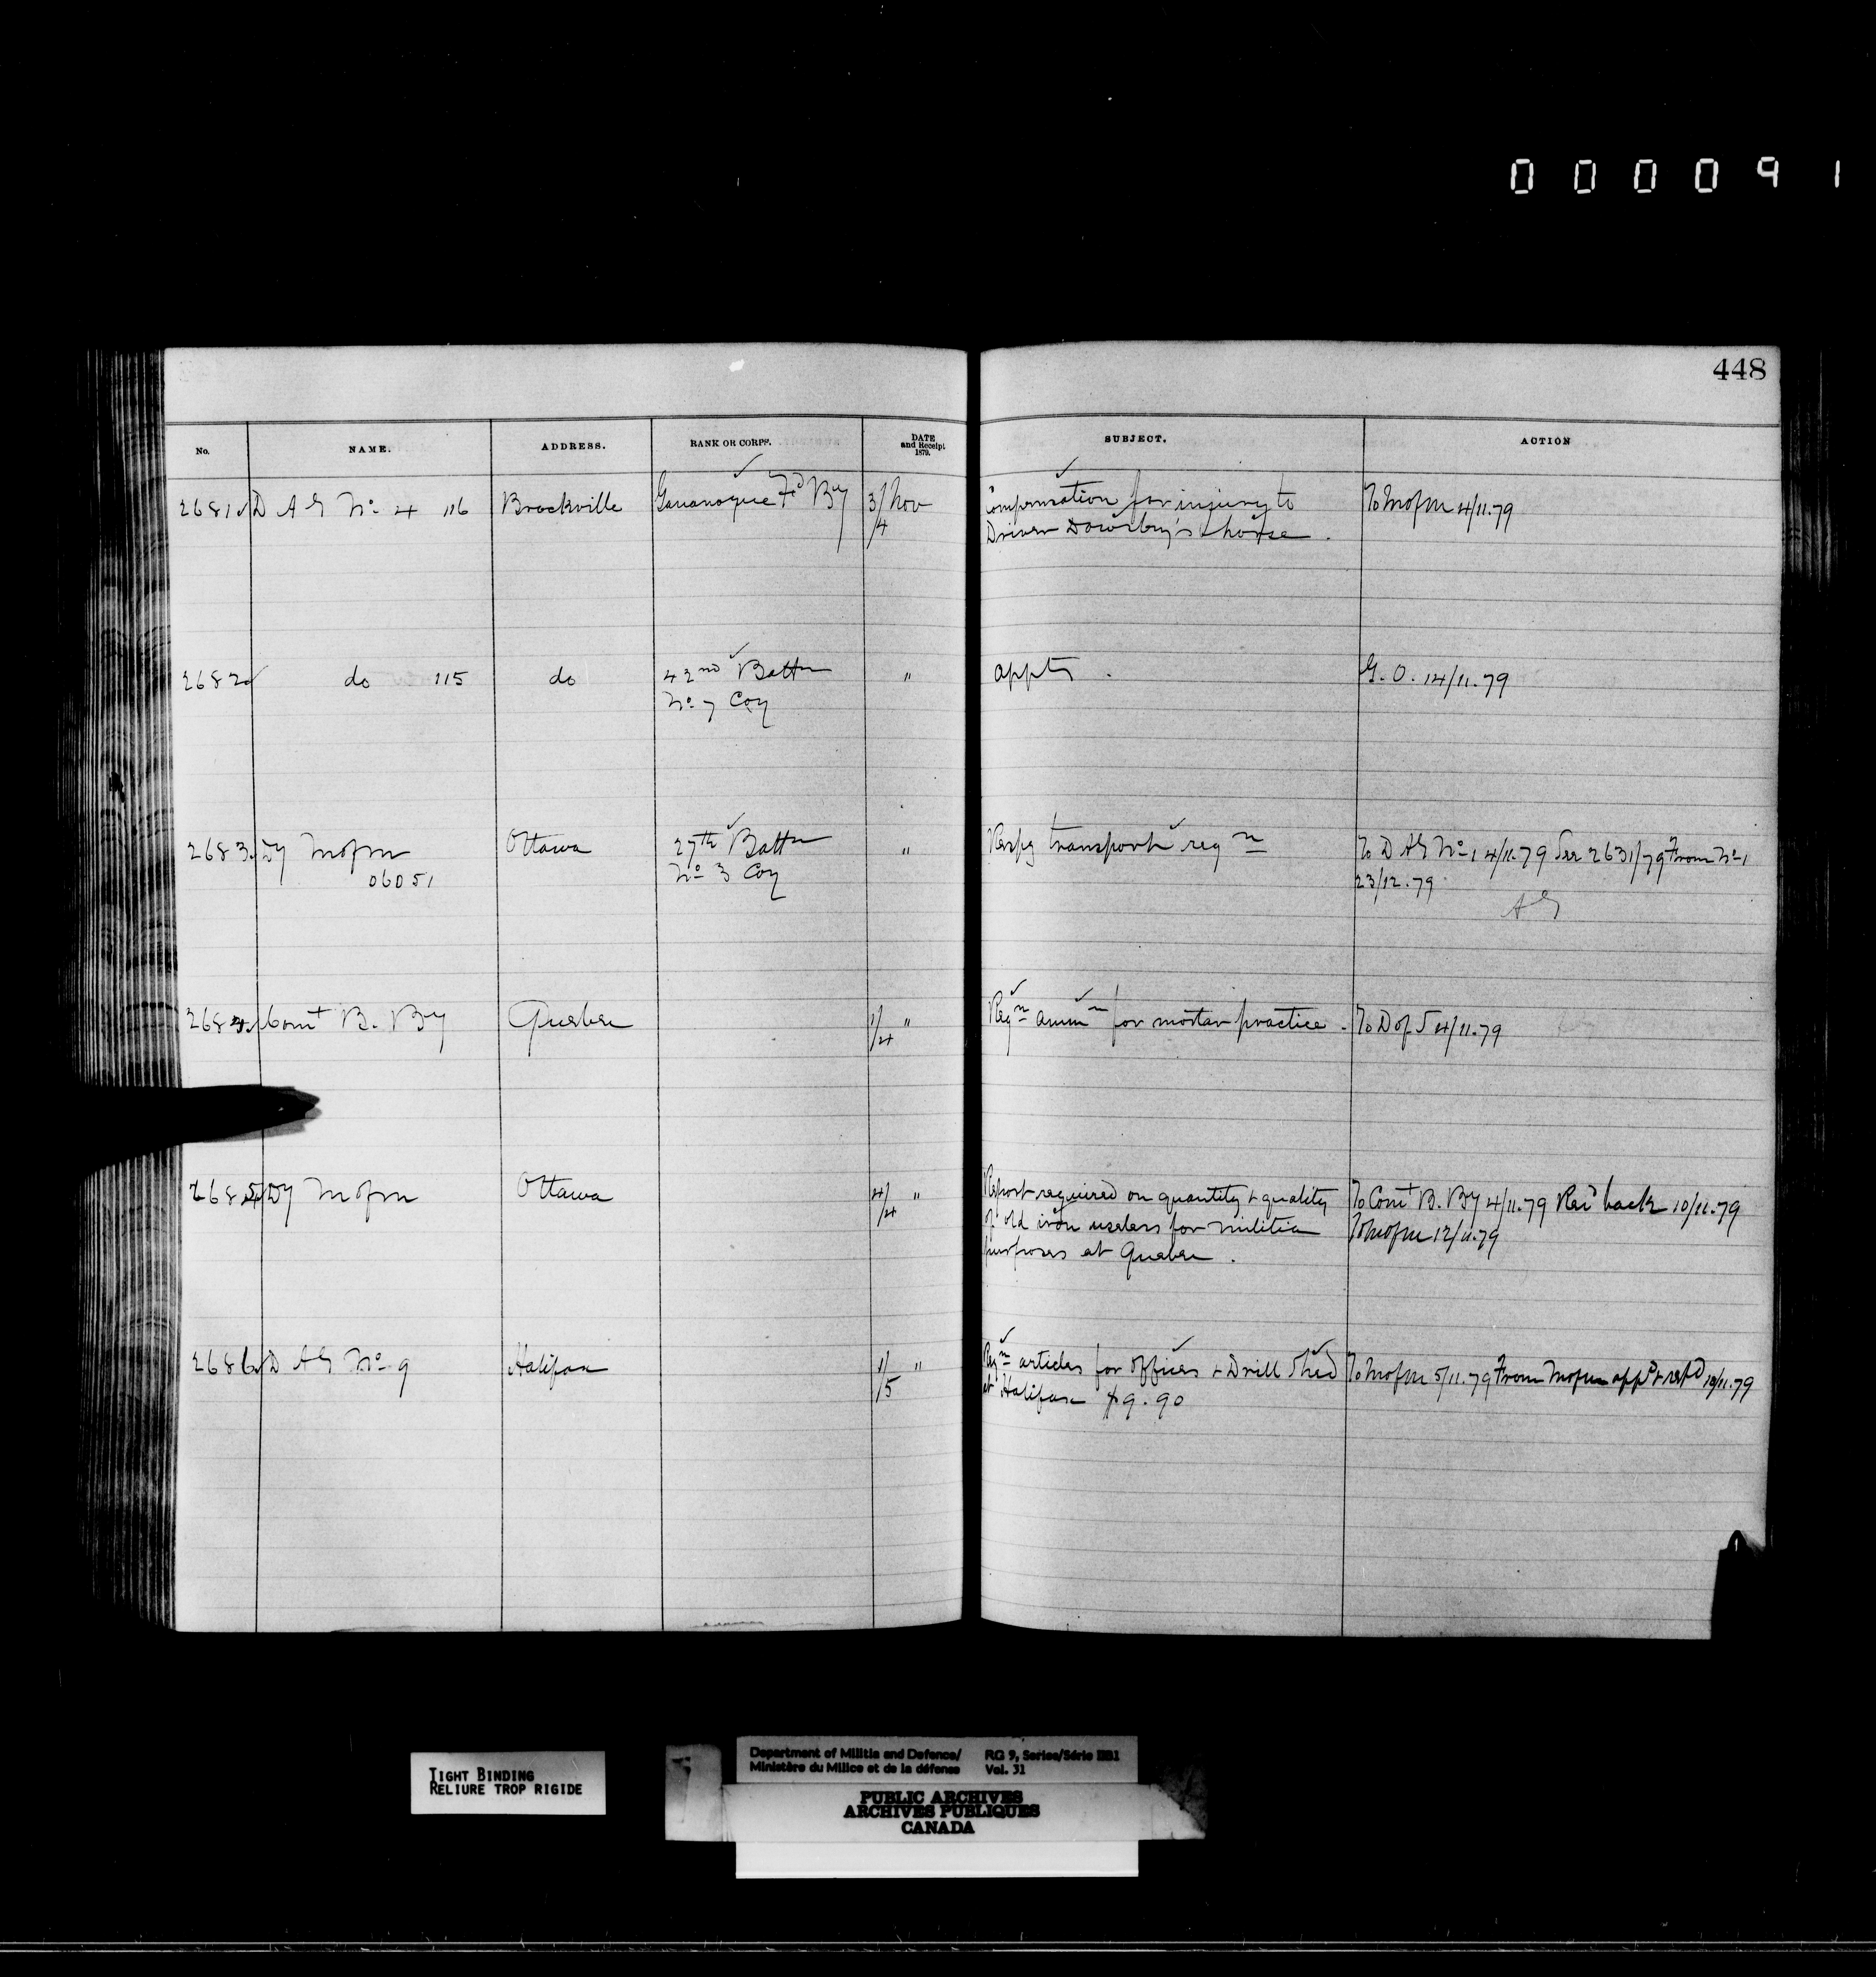 000091
448
No. NAME. ADDRESS. RANK OR CORPS. DATE and Receipt 1879. SUBJECT. ACTION
2681 D A G No 4 116 Brockville Gananoque Fd By 3/4 Nov Compensation for injury to To Mofm 4/11.79
Driver Dowsley's horse.
2682 do 115 do 42nd Battn " appts. G.O. 14/11.79
No 7 Coy
2683 Dy Mofm Ottawa 27th Battn " Respg transport reqn To D A G No 1 4/11.79 See 2631/79 From No 1
06051 No 3 Coy 23/12.79
A G
2684 Comt B. By Quebec 1/4 " Reqn ammn for mortar practice. To D of S 4/11.79
2685 Dy Mofm Ottawa 4/4 " Report required on quantity & quality To Comt B. By 4/11.79 Recd back 10/11.79
of old iron useless for militia To Mofm 12/11.79
purposes at Quebec.
2686 D A G No 9 Halifax 1/5 " Reqn articles for offices & Drill Shed To Mofm 5/11.79 From Mofm appd & retd 10/11.79
at Halifax $9.90
TIGHT BINDING
RELIURE TROP RIGIDE
Department of Militia and Defence/ RG 9, Series/Série IIB1
Ministère du Milice et de la défense Vol. 31
PUBLIC ARCHIVES
ARCHIVES PUBLIQUES
CANADA